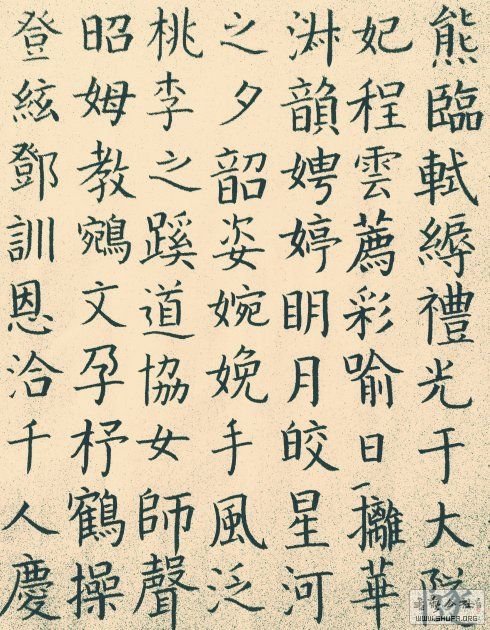 熊臨軾縟禮光于大
妃程雲薦彩喻日攡華
淑韻娉婷眀月皎星河
之夕韶姿婉娩手風泛
桃李之蹊道協女師聲
昭姆教鵷文孕杼鶴操
登絃鄧訓恩洽千人慶
WWW.SHUFA.ORG